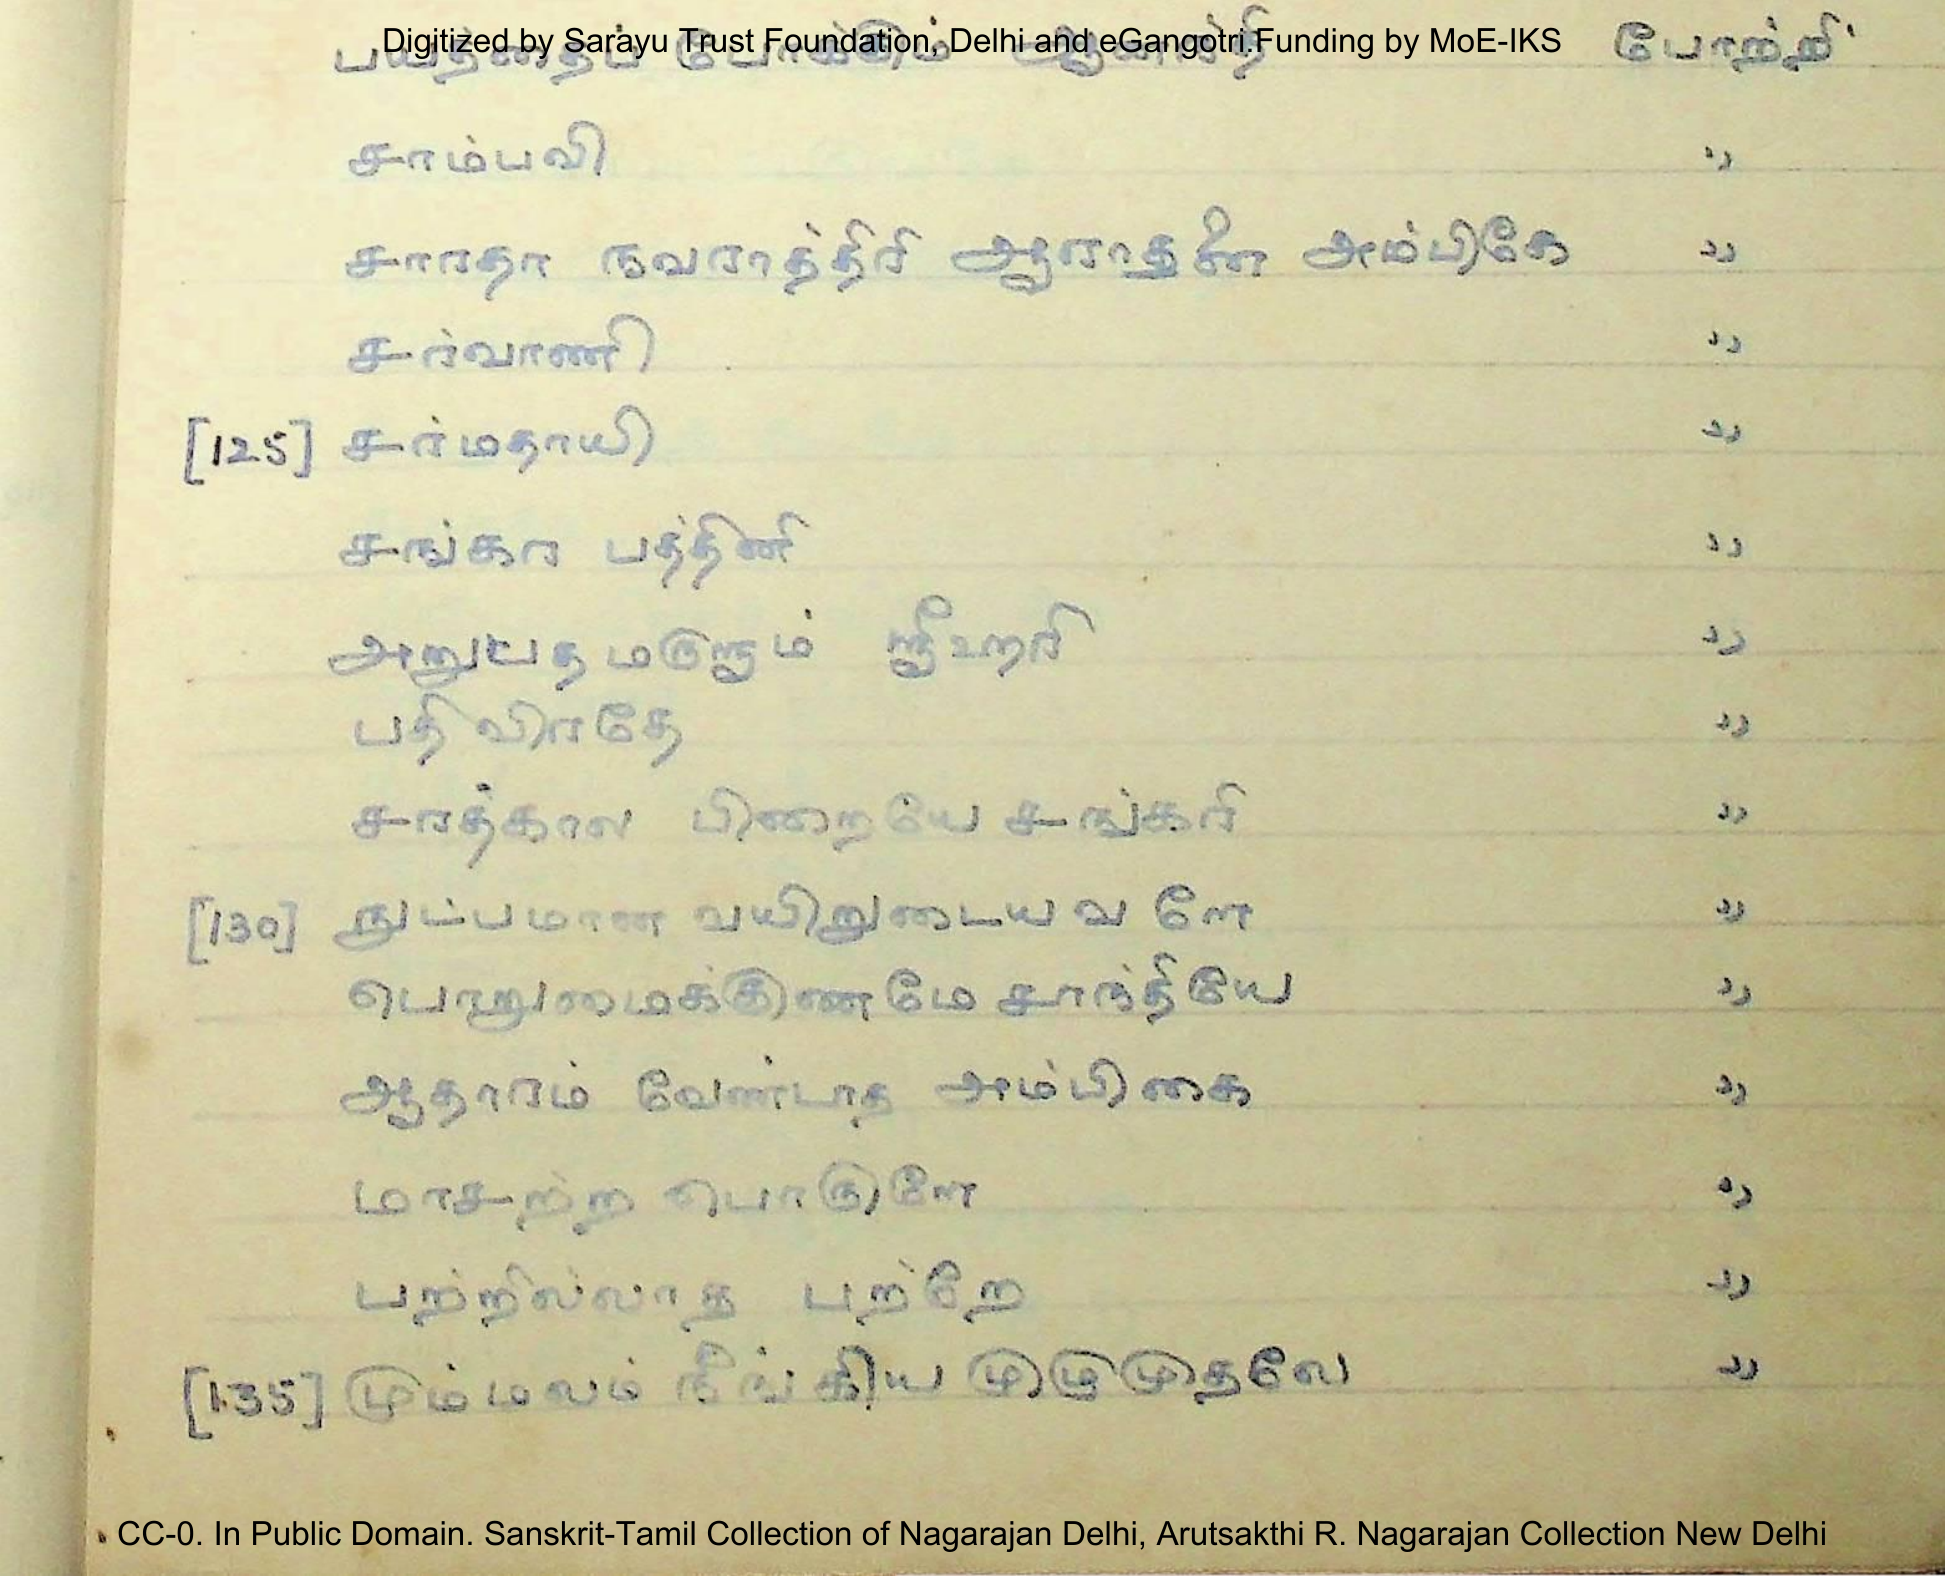 Digitized by Sarayu Trust Foundation, Delhi and eGangotri.Funding by MoE-IKS
பயத்தைப் போக்கும் போற்றி
சாம்பவி ,,
சாரதா நவராத்திரி ஆராதனை அம்பிகே ,,
சர்வாணி ,,
[125] சர்மதாயி ,,
சங்கர பத்தினி ,,
ஸ்ரீஹரி ,,
பதிவிரதே ,,
சரத்கால பிறையே சங்கரி ,,
[130] நுட்பமான வயிறுடையவளே ,,
பொறுமைக்குணமே சாந்தியே ,,
ஆதாரம் வேண்டாத அம்பிகை ,,
மாசற்ற பொருளே ,,
பற்றில்லாத பற்றே ,,
[135] மும்மலம் நீங்கிய முழுமுதலே ,,
CC-0. In Public Domain. Sanskrit-Tamil Collection of Nagarajan Delhi, Arutsakthi R. Nagarajan Collection New Delhi